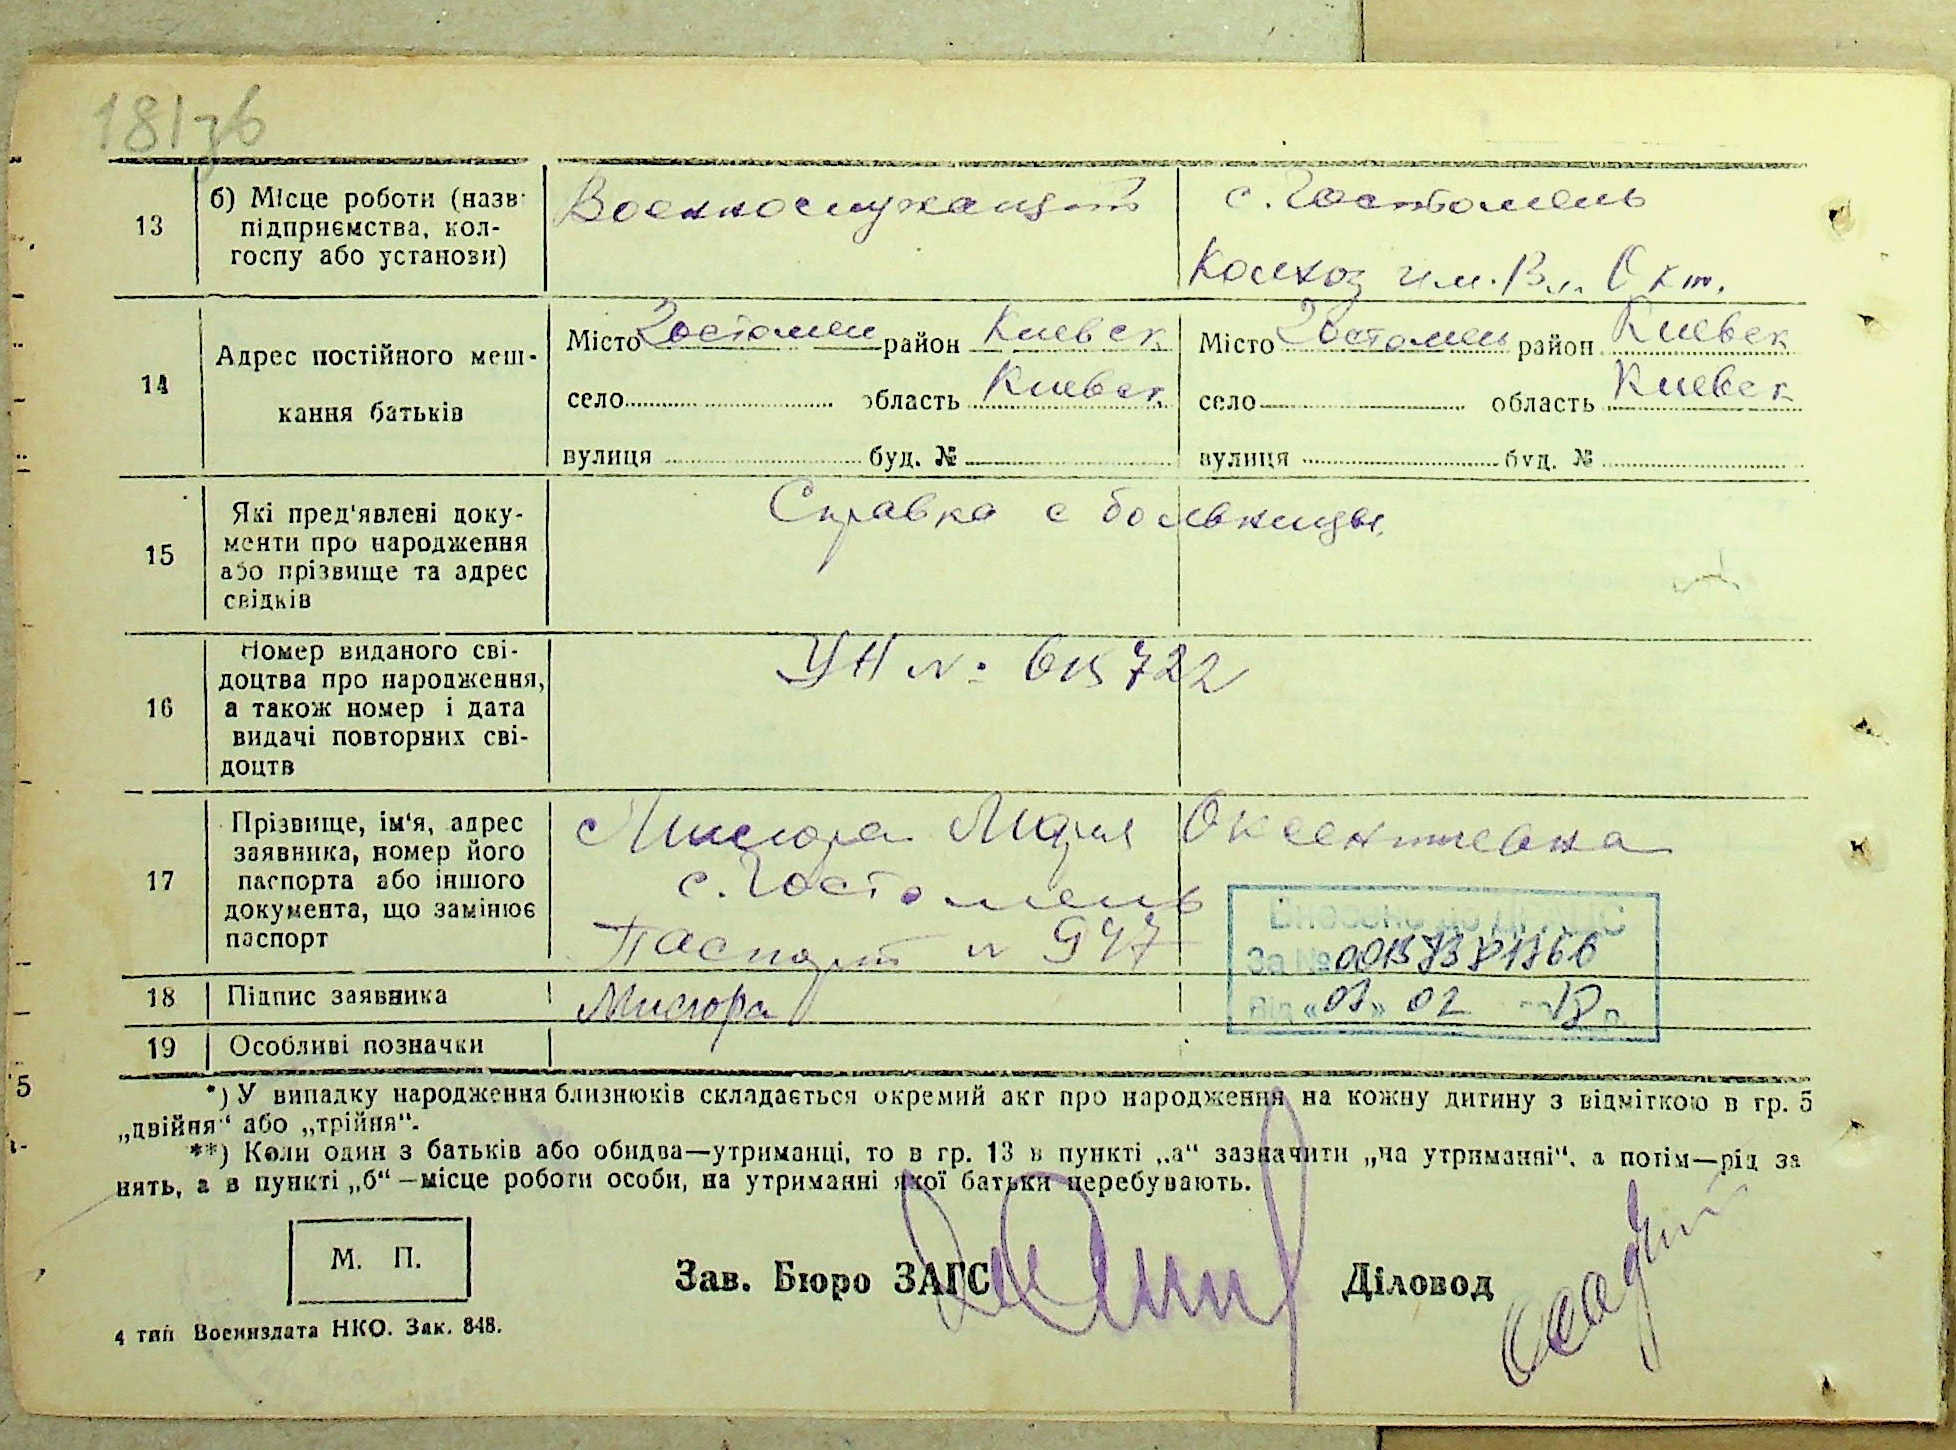 181зв
13
б) Місце роботи (назв
підприємства, кол-
госпу або установи)
Военнослужащий
с. Гостомель
Колхоз им. Вл. Окт.
14
Адрес постійного меш-
кання батьків
Місто Гостомель район Киевск
село область Киевск
вулиця буд. №
Місто Гостомель район Киевск
село область Киевск
вулиця буд. №
15
Які пред'явлені доку-
менти про народження
або прізвище та адрес
свідків
Справка с больницы
16
Номер виданого сві-
доцтва про народження,
а також номер і дата
видачі повторних сві-
доцтв
УН №
722
17
Прізвище, ім'я, адрес
заявника, номер його
паспорта або іншого
документа, що замінює
паспорт
Мисюра Мария Оксентиевна
с. Гостомель
Паспорт № 947
За №
Від « » 02
18
Підпис заявника
Мисюра
19
Особливі позначки
*) У випадку народження близнюків складається окремий акт про народження на кожну дитину з відміткою в гр. 5
„двійня“ або „трійня“.
**) Коли один з батьків або обидва—утриманці, то в гр. 13 в пункті „а“ зазначити „на утриманні“, а потім—рід за
нять, а в пункті „б“—місце роботи особи, на утриманні якої батьки перебувають.
5
М. П.
Зав. Бюро ЗАГС
Діловод
4 тип Воениздата НКО. Зак. 848.